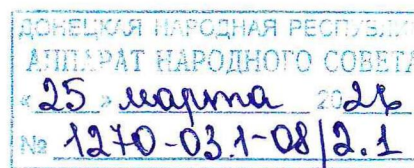 ДОНЕЦКАЯ НАРОДНАЯ РЕСПУБЛИКА
АППАРАТ НАРОДНОГО СОВЕТА
«25» марта 2026
№ 1270-03.1-08/2.1